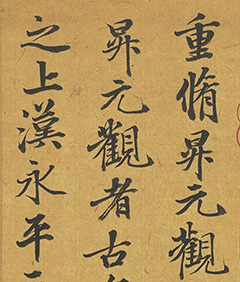 重脩昇元觀
昇元觀者古
之上漢永平